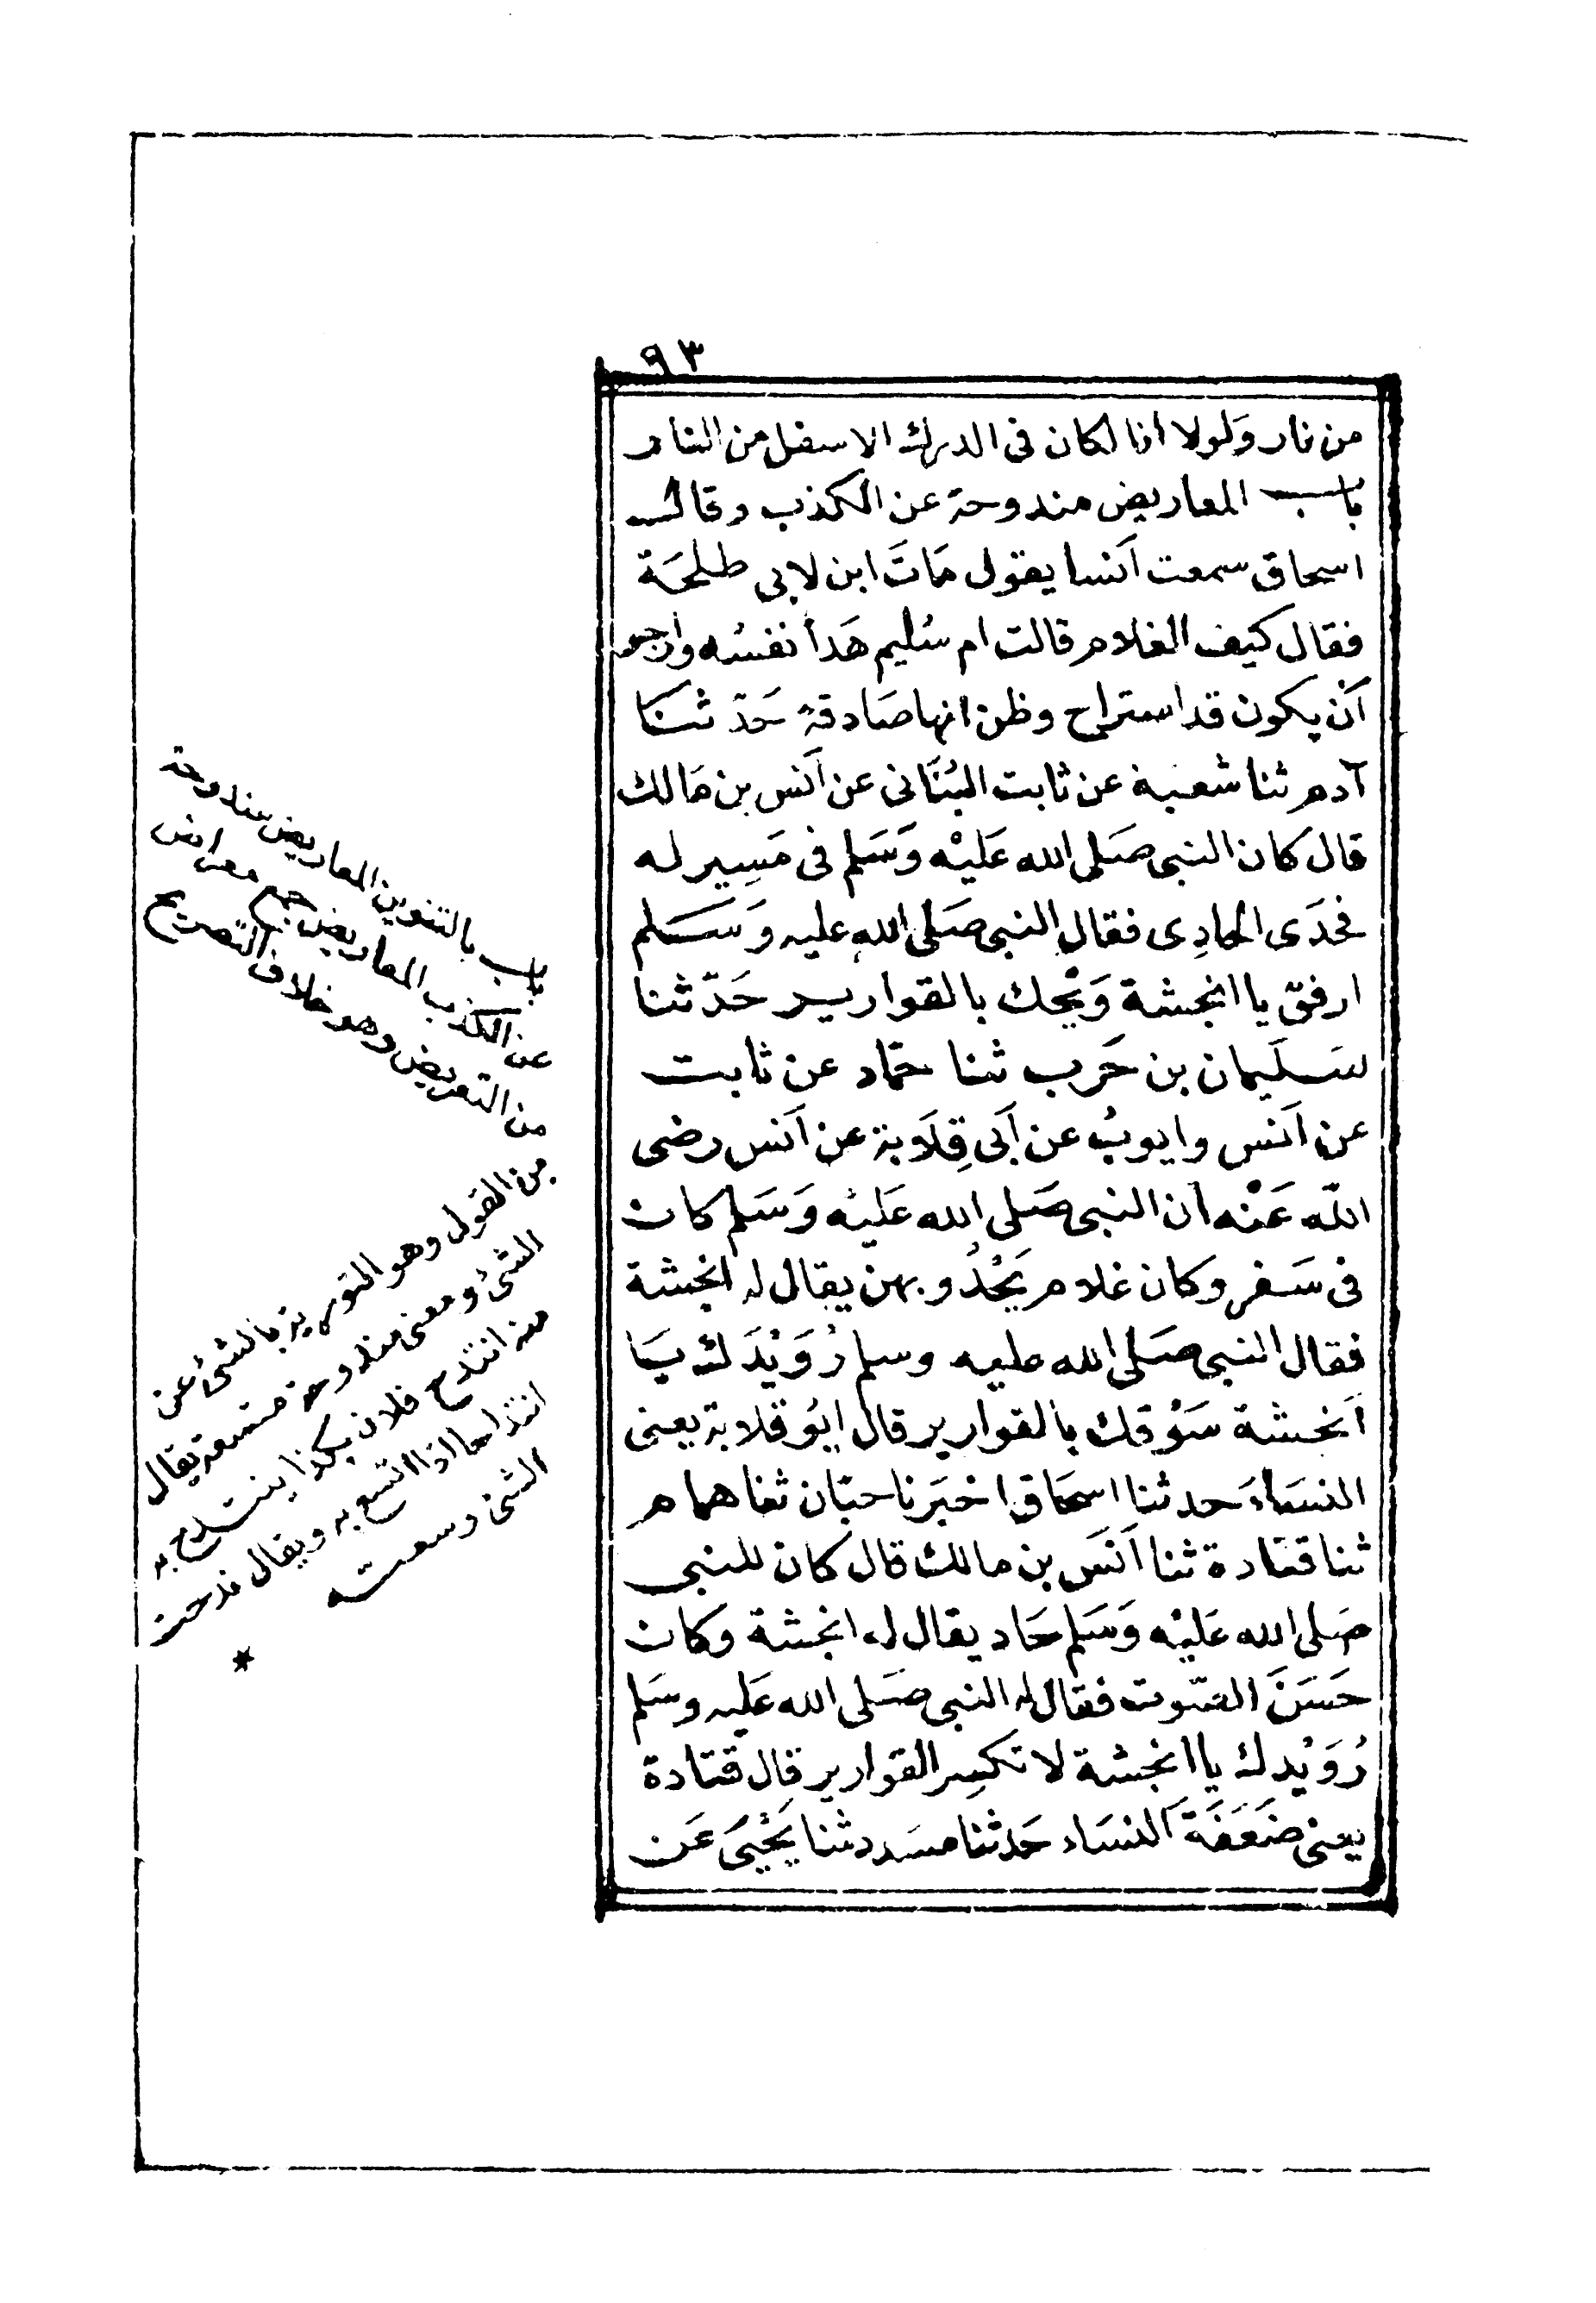 ٩٣
من نار وَلولا انا لكان فى الدرك الاسفل من النار
باب المعاريض مندوحة عن الكذب وقال
اسحاق سمعت اَنسا يقول مَاتَ ابن لابى طلحَة
فقال كيف الغلام قالت ام سُليم هَدأ نفسُه وارجو
اَنْ يكون قد استراح وظن انها صَادقة حَدّثنَا
آدم ثنا شعبة عن ثابت البُنَانى عن اَنس بن مَالك
قال كان النبى صَلى الله عَليْه وَسَلم فى مَسِيرله
فحدَى الحادِى فقال النبى صَلى الله عليه وَسَلم
ارفق يا انجشة وَيْحك بالقوارير حَدّثنا
سَليمان بن حَرب ثنا حمّاد عن ثابت
عن اَنس وايوبُ عن اَبى قِلَابة عن اَنس رضى
اللّه عَنْه ان النبى صَلى الله عَليْه وَسَلم كان
فى سَفر وكان غلام يَحْدُو بهن يقال له انجشة
فقال النبى صَلى الله عليه وسلم رُوَيْدَك يَا
اَنجشة سَوْقك بالقوارير قال ابُو قلابة يعنى
النسَاءَ حدثنا اسحَاق اخبَرنا حبّان ثنا همام
ثنا قتادة ثنا اَنَس بن مالك قال كان للنبى
صَلى الله عَليْه وَسَلم حَاد يقال له انجشة وكان
حَسَنَ الصّوت فقال له النبى صَلى الله عَليه وسَلم
رُوَيْدك يا انجشة لا تكسِر القوارير قال قتادة
يعنى ضَعَفَةَ النسَاء حَدثنا مسَدد ثنا يَحْيَى عَن
باب بالتنوين المعاريض مندوحة
عن الكذب المعاريض جمع معراض
من التعريض وهو خلاف التصريح
من القول وهو التورية بالشئ عن
الشئ ومعنى مندوحة متسعة يقال
منه انتدح فلان بكذا ينتدح به
انتداحا اذا اتسع به ويقال ندحت
الشئ وسعته